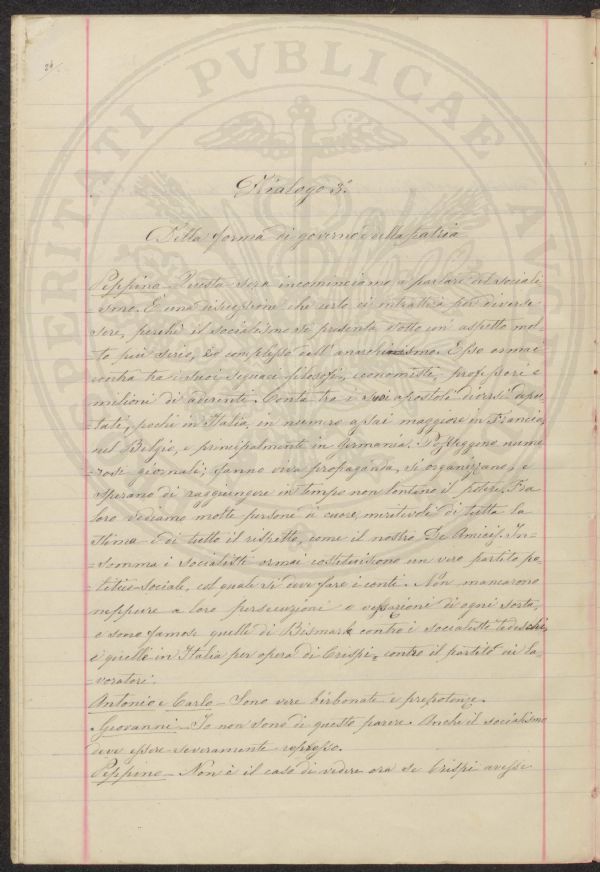 24
PERITATI PVBLICAE AVG
Dialogo 3.º
Della forma di governo e della patria
Peppino - Questa sera incominciamo a parlare del sociali
-smo. È una discussione che certo ci intratterrà per diverse
sere, perchè il socialismo si presenta sotto un' aspetto mol-
to più serio, e complesso dell' anarchismo. Esso ormai
conta tra i suoi seguaci filosofi, economisti, professori e
milioni di aderenti. Conta tra i suoi apostoli diversi depu
tati, pochi in Italia, in numero assai maggiore in Francia,
nel Belgio, e principalmente in Germania. Posseggono nume
-rosi giornali; fanno viva propaganda, si organizzano, e
sperano di raggiungere in tempo non lontano il potere. Fra
loro vediamo molte persone di cuore, meritevoli di tutta la
stima e di tutto il rispetto, come il nostro De Amicis. In-
-somma i socialisti ormai costituiscono un vero partito po
litico-sociale, col quale si deve fare i conti. Non mancarono
neppure a loro persecuzioni e vessazioni di ogni sorta,
e sono famose quelle di Bismark contro i socialisti tedeschi,
e quelle in Italia per opera di Crispi, contro il partito dei la-
voratori.
Antonio e Carlo - Sono vere birbonate e prepotenze.
Giovanni - Io non sono di questo parere. Anche il socialismo
deve essere severamente represso.
Peppino - Non è il caso di vedere ora se Crispi avesse